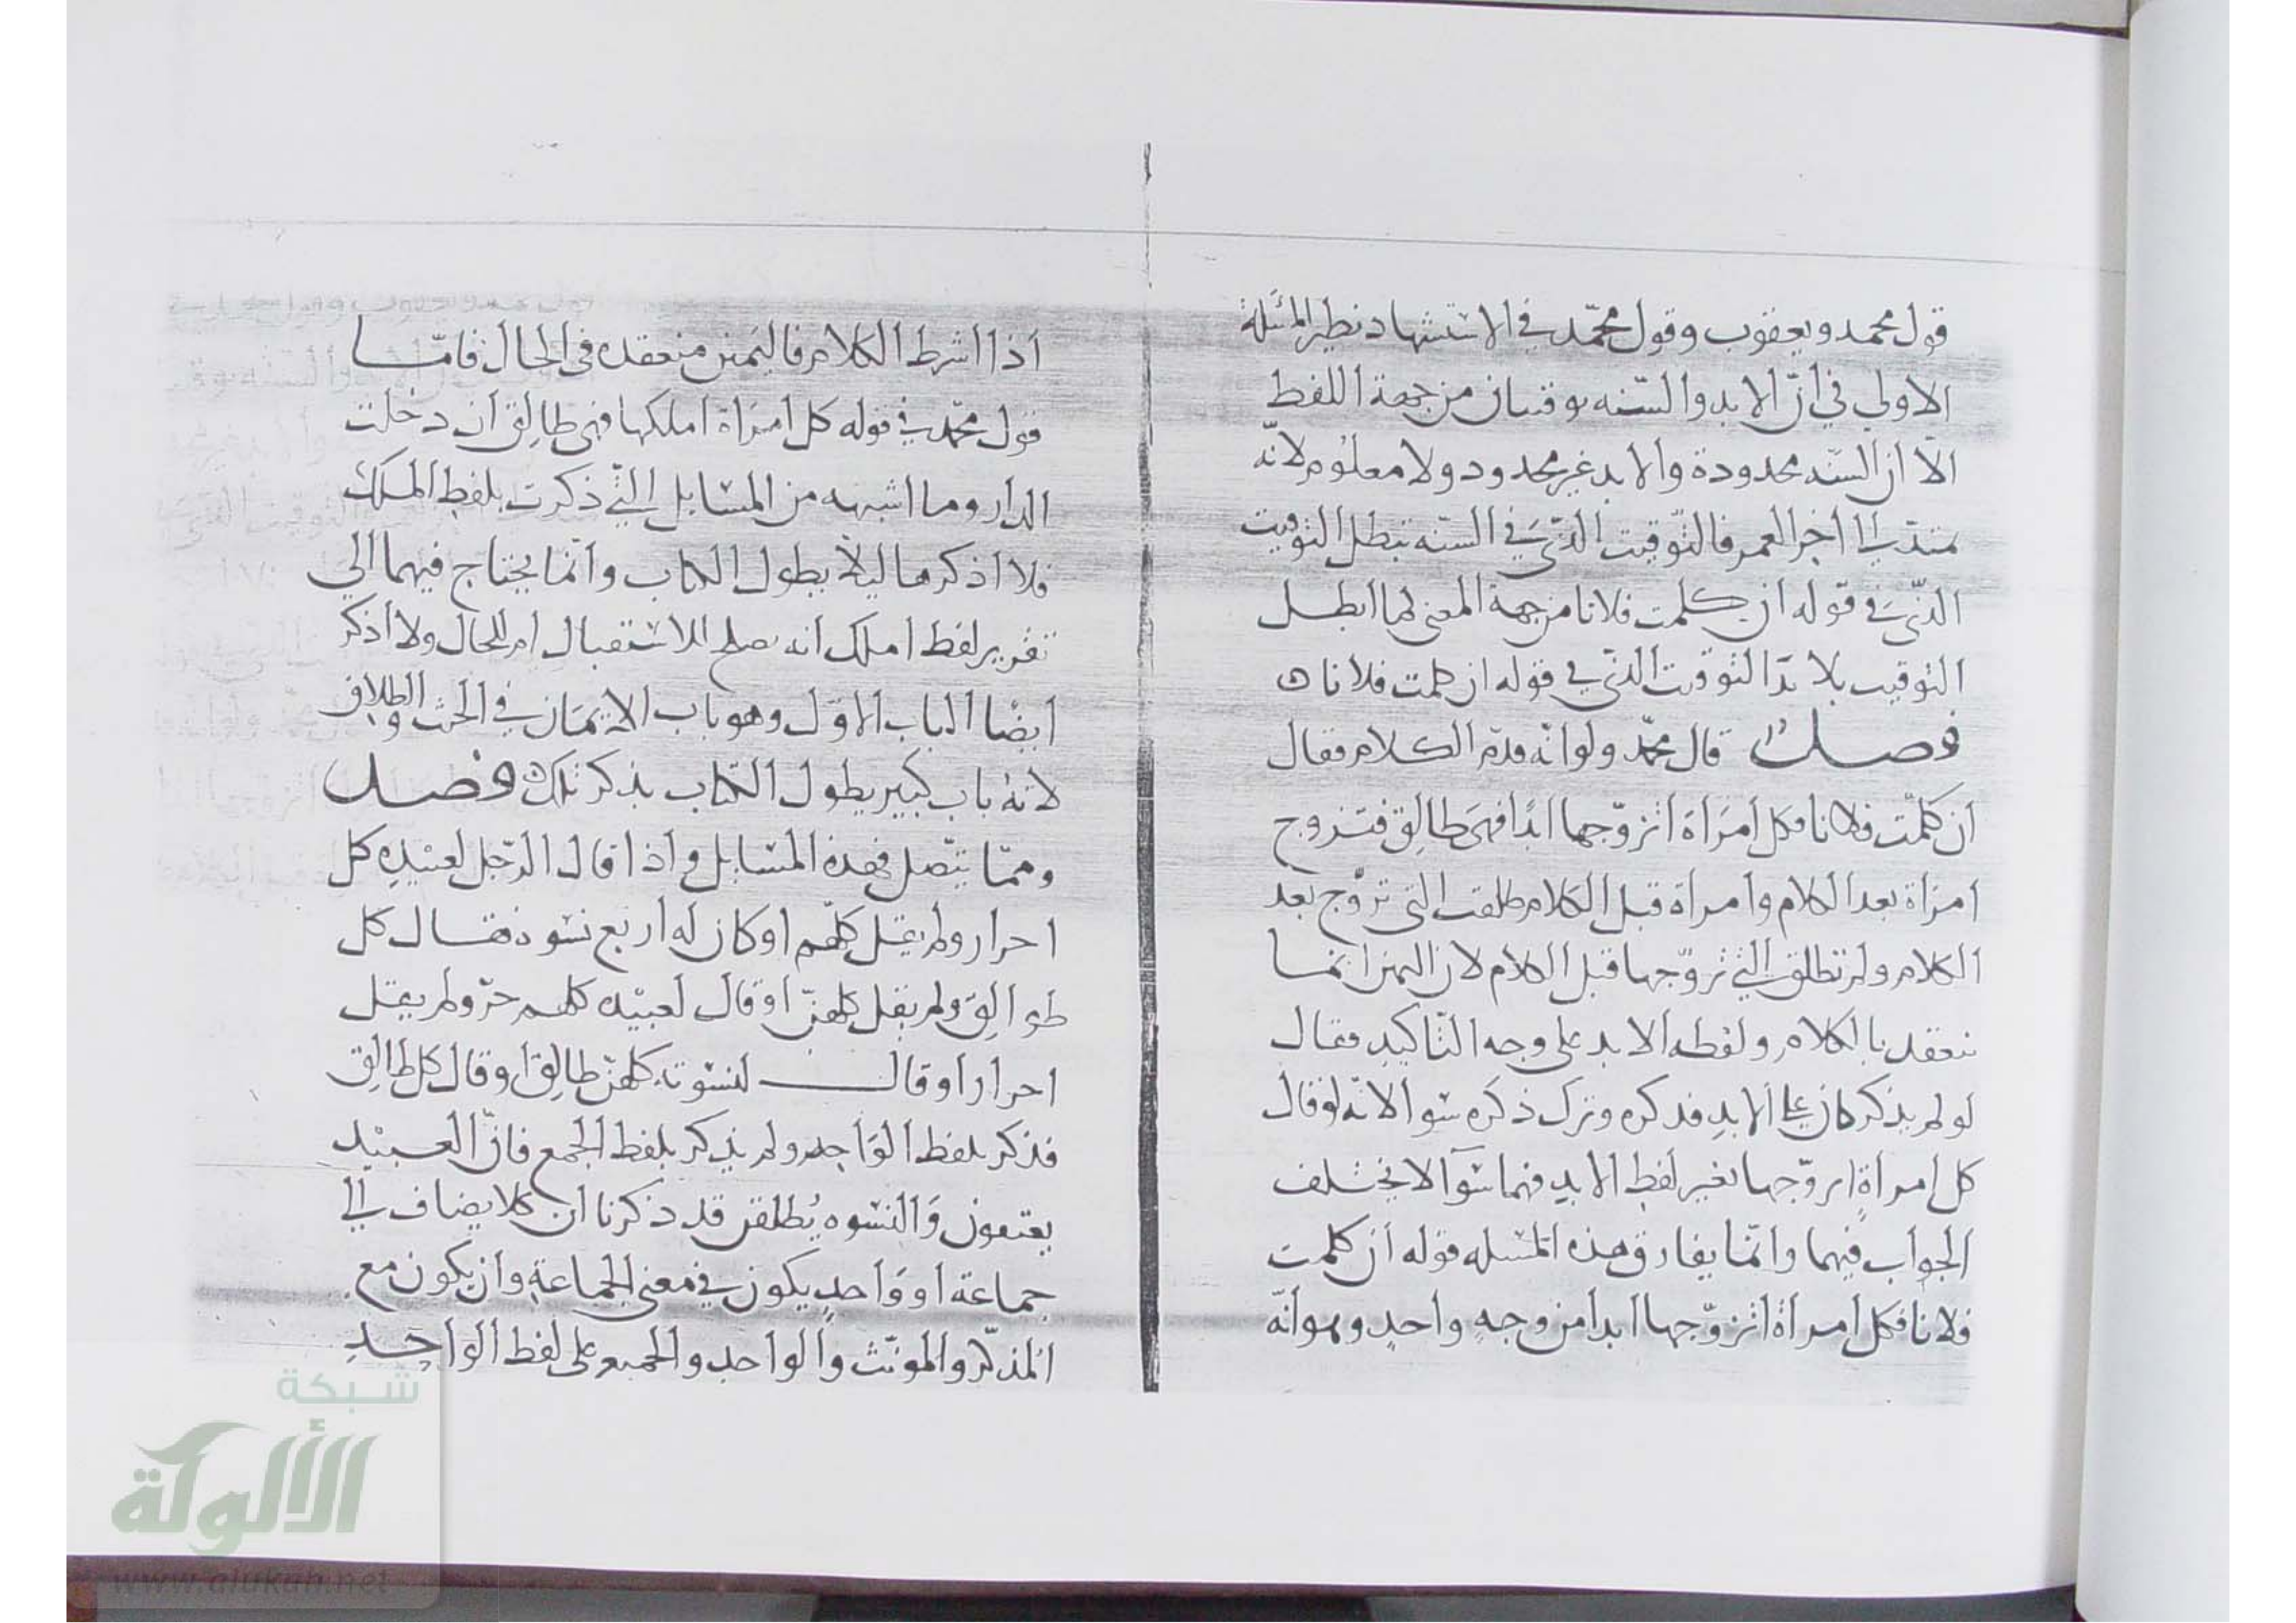 قول محمد ويعقوب وقول محمّد في الاستشهاد نظير المسئلة
الاولي في أنّ الابد والسّنه توقتان من جهة اللفظ
الّا أن السّنه محدودة والابد غير محدود ولا معلوم لانّه
ممتدّ إلى أخر العمر فالتّوقيت الذّي في السّنه تبطل التوقيت
الذّي في قوله ان كلمت فلانا من جهة المعنى لما ابطل
التوقيت بلا بدّ التوقيت الذّي في قوله ان كلمت فلانا ه
فصل قال محمّد ولو انّه قدّم الكلام فقال
أن كلمّت فلانا فكل أمرَأة أتزوّجها ابدًا فهي طالِق فتزوج
امرَاة بعد الكلام وأمراة قبل الكلام طلقت التي تزوّج بعد
الكلام ولم تطلق التّي تزوّجها قبل الكلام لان اليمن انمّا
تنعقد بالكلام ولفظه الابد على وجه التّاكيدِ فقال
لو لم يذكر كان على الابدِ فذكره وترك ذكره سَوا لانّه لو قال
كل امراةٍ اتزوّجها بغير لفظ الابدِ فهما سَوآ لا يختلف
الجواب فيهما وانمّا يفارق هذه المسله قوله أن كلمت
فلانا فكل أمرأة أتزوّجها ابدا من وجهٍ واحدٍ وهو أنّه
أذا اشرط الكلام فاليَمين منعقده في الحال فامّا
قول محمّد في قوله كل أمرَاة املكها فهي طالِق أن دخلت
الدار وما اشبهه من المسَايل التّي ذكرت بلفظِ الملك
فلا أذكرها ليلّا يطول الكتاب وأنمّا يحتاج فيهما الي
تقرير لفظ املك انه يصلح للاستقبال ام للحال ولا أذكر
أيضًا الباب الاوّل وهو باب الايمَان في الحنث والطلاق
لانه باب كبير يطول الكتاب بذكر ذلك ه فصل
وممّا يتّصل بهذه المسَايل وأذا قال الرّجل لعبيْدِه كل
احرار ولم يقل كلهّم او كان له أربع نسوة فقال كل
طوالِق ولم يقل كلهنّ أو قال لعبيْده كلهم حرّ ولم يقل
احرار أو قال لنسوته كلهنّ طالِق أو قال كل طالِق
فذكر بلفظ الوَاحِد ولم يذكر بلفظ الجمع فانّ العبيْد
يعتقون وَالنسوه يُطلقن قد ذكرنا أن كلا يضاف إلى
جماعة أو وَاحدٍ يكون في معني الجماعةِ وأن يكون مع
المذكّر والمونّث والواحدِ والجميع على لفظ الواحِدِ
شبكة
الألوكة
www.alukah.net